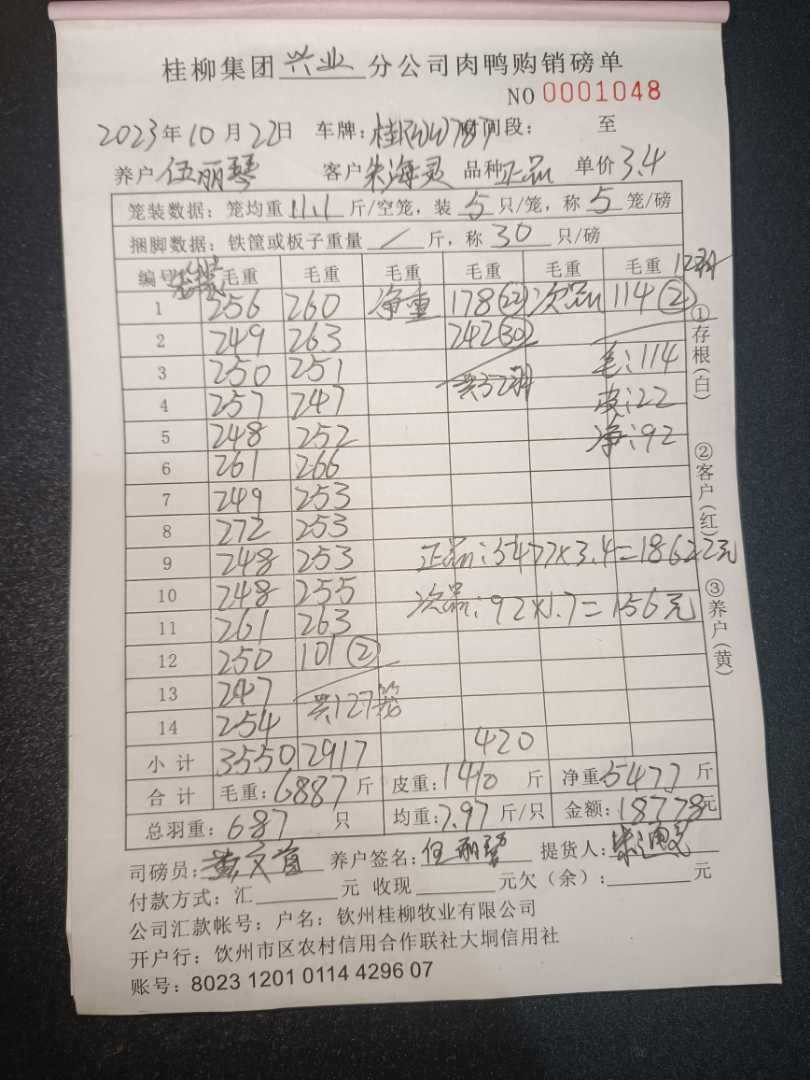 桂柳集团 兴业 分公司肉鸭购销磅单
NO 0001048
2023年10月22日 车牌：桂KWW787 时间段： 至
养户 伍丽琴 客户 朱海灵 品种 正品 单价 3.4
笼装数据：笼均重 11.1 斤/空笼，装 5 只/笼，称 5 笼/磅
捆脚数据：铁筐或板子重量 / 斤，称 30 只/磅
编号 毛重 毛重 毛重 毛重 毛重 毛重 12只
1 256 260 净重 178(22) 次品 114②
2 249 263 242(30)
3 250 251 共52只 毛：114
4 257 247 皮：22
5 248 252 净：92
6 261 266
7 249 253
8 272 253
9 248 253 正品：5477×3.4=18622元
10 248 255 次品：92×1.7=156元
11 261 263
12 250 101②
13 247
14 254 共127笼
小计 3550 2917 420
合计 毛重：6887斤 皮重：1410斤 净重：5477斤
总羽重：687只 均重：7.97斤/只 金额：18778元
①存根(白)
②客户(红)
③养户(黄)
司磅员： 养户签名：伍丽琴 提货人：
付款方式：汇 元 收现 元欠（余）： 元
公司汇款帐号：户名：钦州桂柳牧业有限公司
开户行：饮州市区农村信用合作联社大垌信用社
账号：8023 1201 0114 4296 07